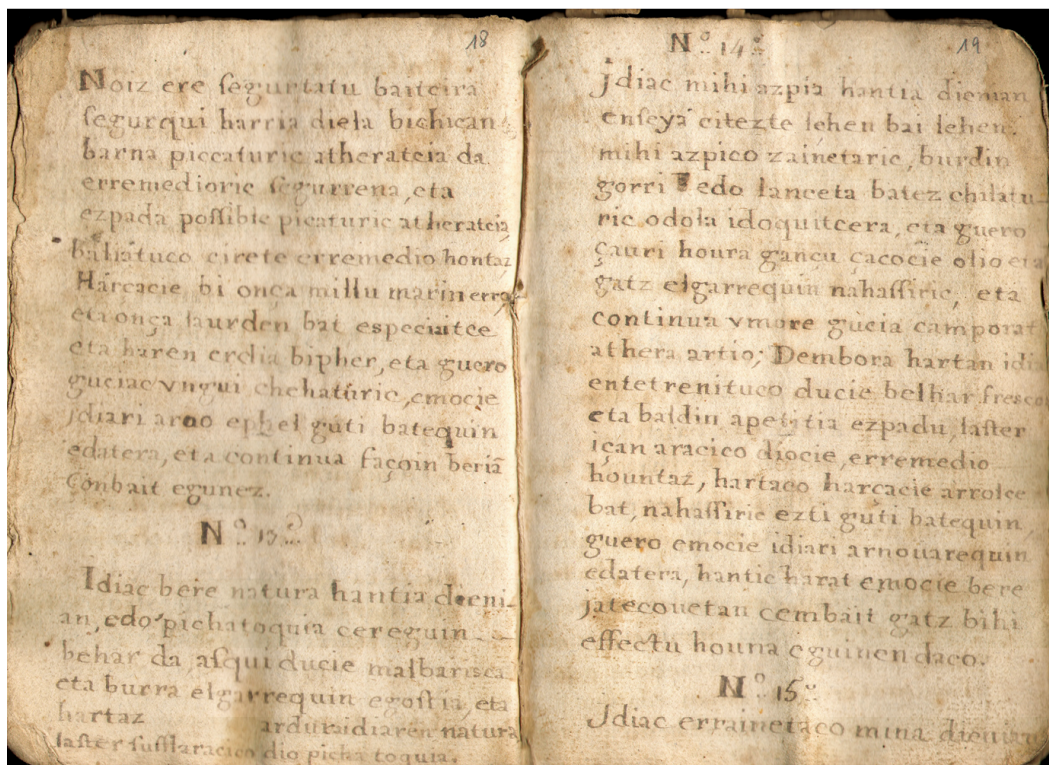 18
Noiz ere ſegurtatu baitcira
ſegurqui harria diela bichican
barna piccaturic atherateia da
erremedioric ſegurrena, eta
ezpada poſſible picaturic atherateia
baliatuco cirete erremedio hontaz
Harcacie bi onça millu marin erro
eta onça laurden bat especiatce
eta haren erdia bipher, eta guero
guciac vngui chehaturic, emocie
jdiari arno ephel guti batequin
edatera, eta continua façoin beriã
Conbait egunez.
Nº 13º
Idiac bere natura hantia dieni-
an, edo pichatoquia cereguin
behar da, aſqui ducie malbarisca
eta burra elgarrequin egoſtia, eta
hartaz ardura idiaren natura
laſter ſuſſlaracico dio picha toquia.
19
Nº 14º
jdiac mihi azpia hantia dieman
enſeya citezte lehen bai lehen
mihi azpico zainetaric, burdin
gorri edo lanceta batez chilatu-
ric odola idoquitcera, eta guero
çauri houra gançu çacocie olio eta
gatz elgarrequin nahaſſiric, eta
continua vmore gucia camporat
athera artio; Dembora hartan idia
entetrenituco ducie belhar freſco
eta baldin apetitia ezpadu, laſter
içan aracico diocie, erremedio
hountaz, hartaco harcacie arrolce
bat, nahaſſiric ezti guti batequin,
guero emocie idiari arnouarequin
edatera, hantic harat emocie bere
jatecouetan cembait gatz bihi
effectu houna eguinen daco.
Nº 15º
Jdiac errainetaco mina dienian